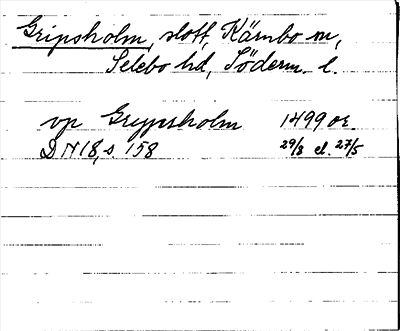 Gripsholm, slott, Kärnbo sn,
Selebo hd, Söderm. l.
vp Greypsholm 1499 or.
D N 18, s 158 29/8 el. 27/5